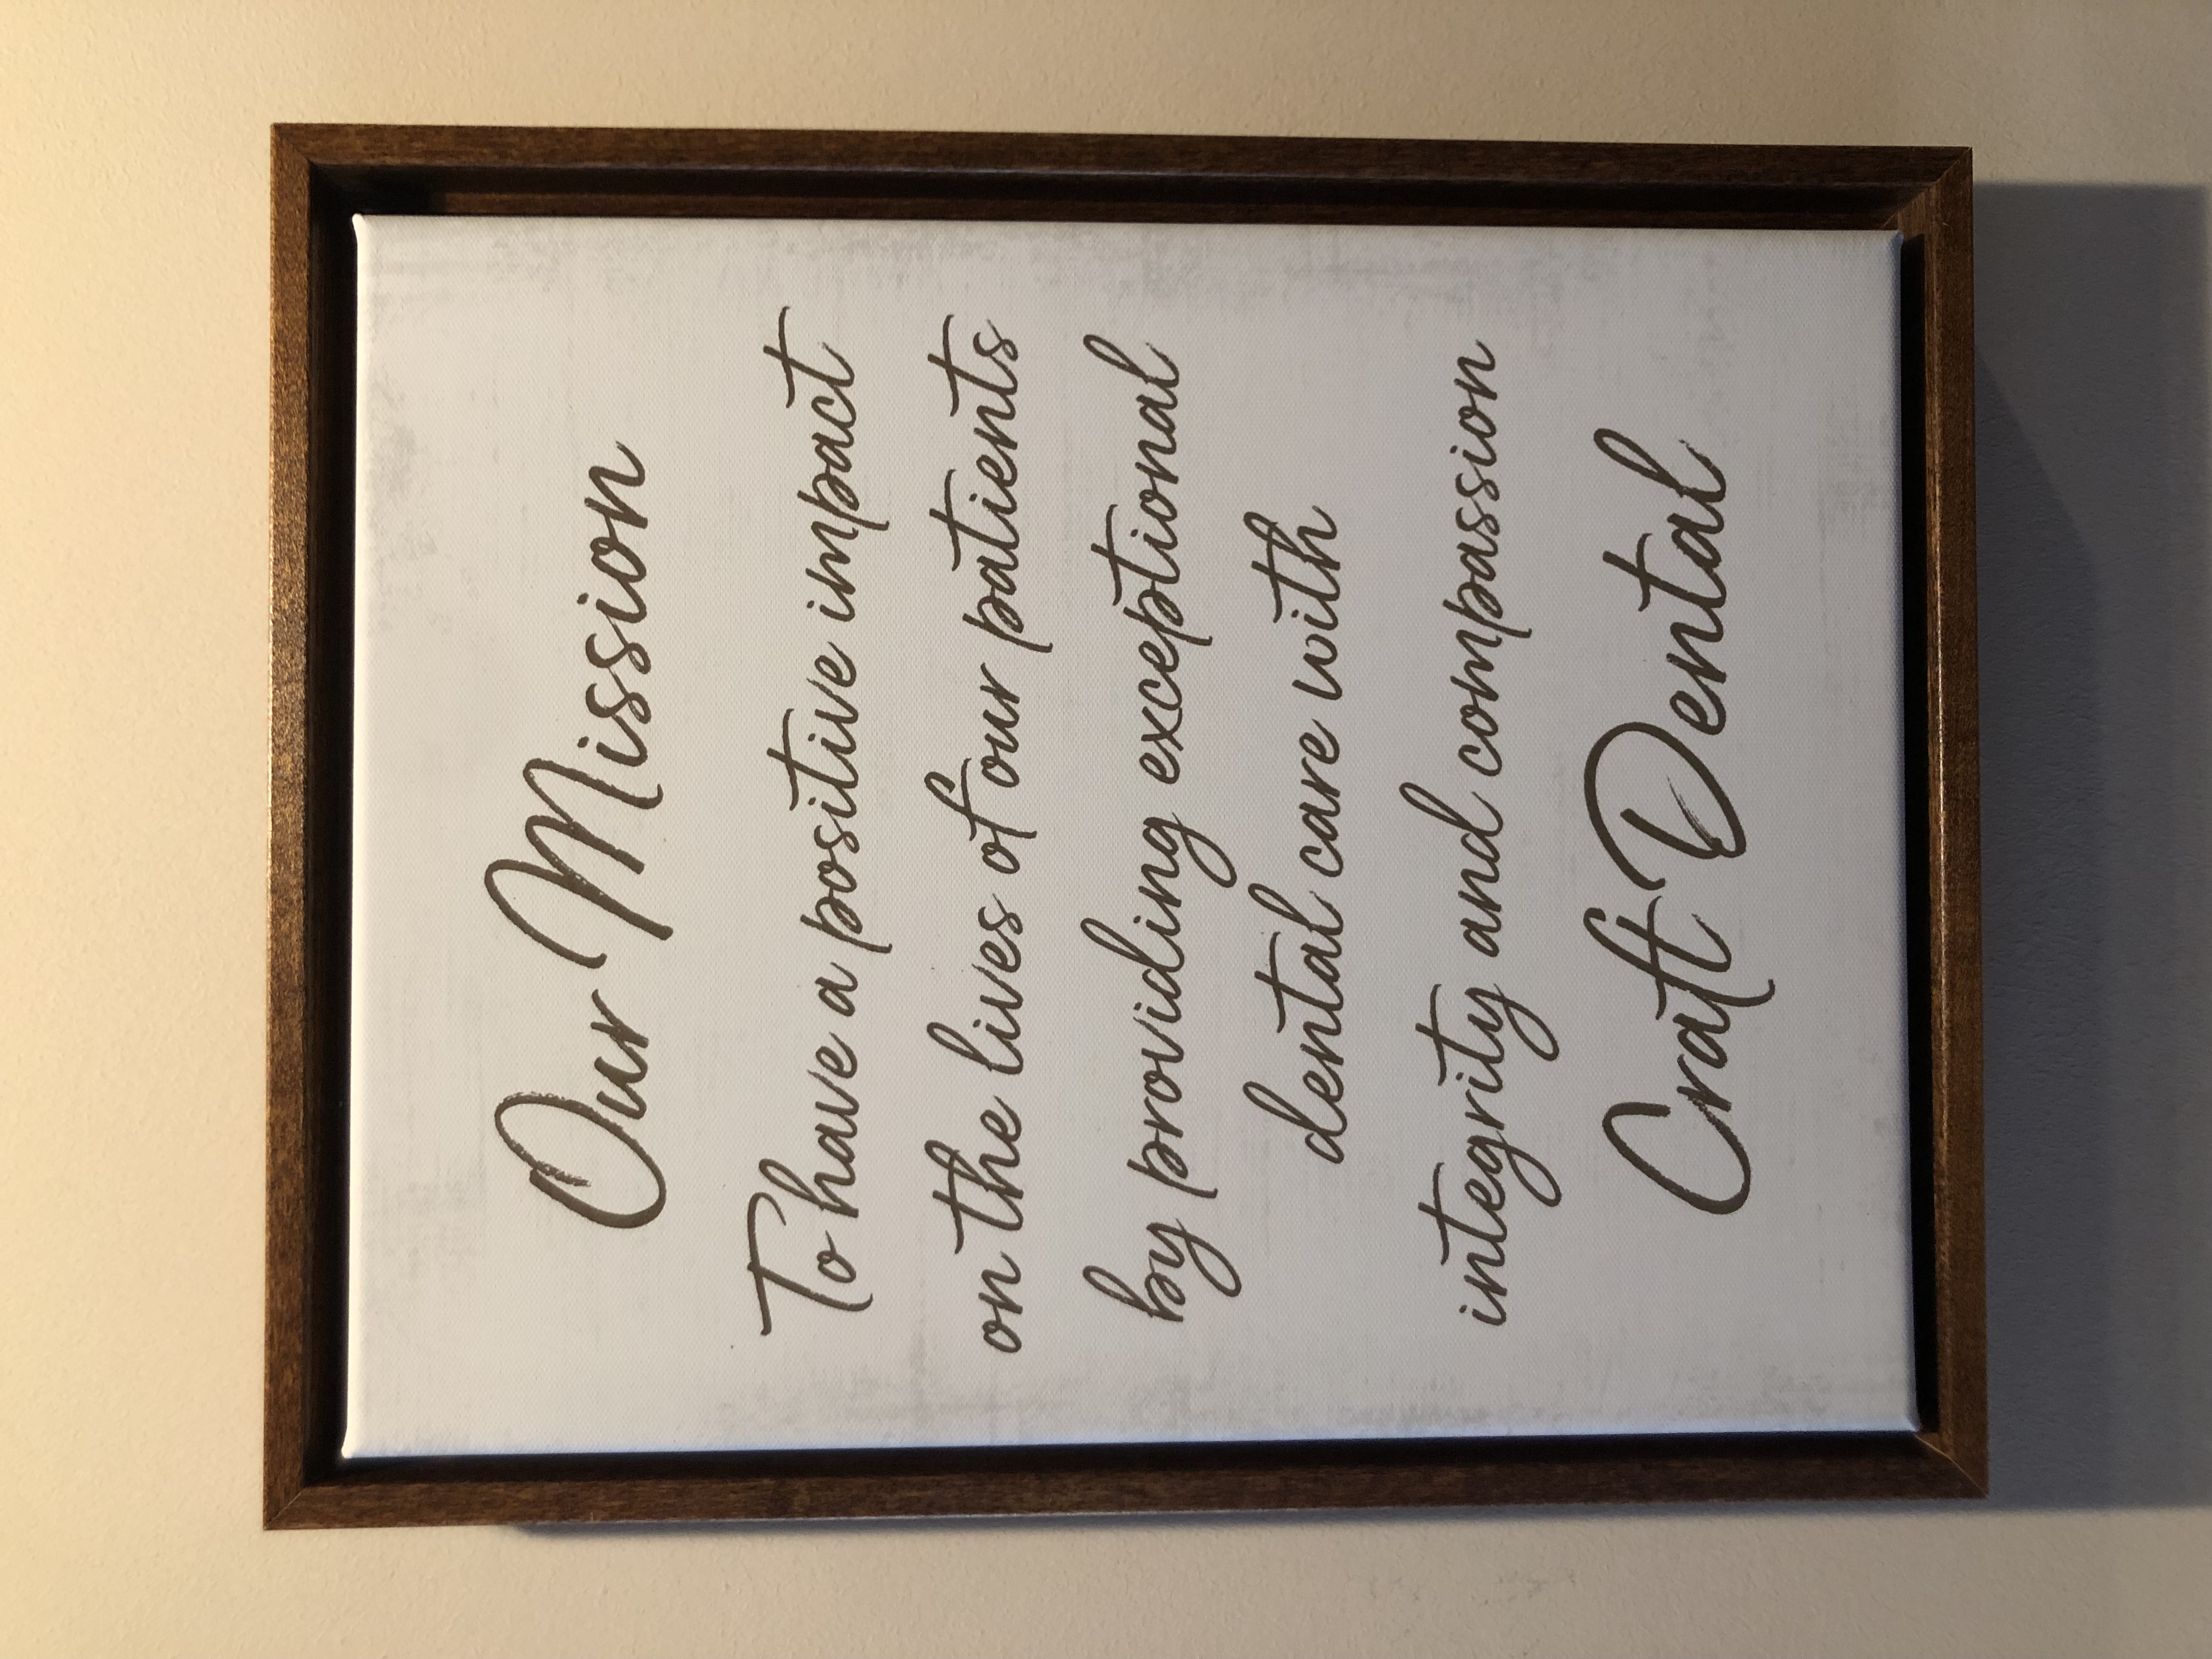 Our Mission
To have a positive impact
on the lives of our patients
by providing exceptional
dental care with
integrity and compassion
Craft Dental